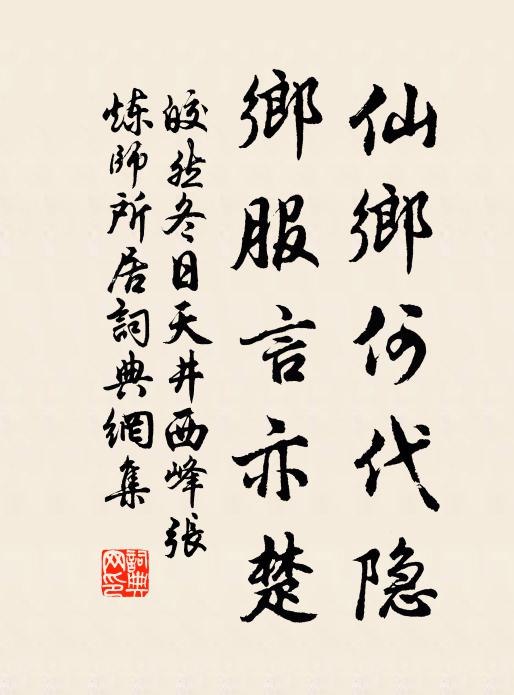 仙鄉何代隐
鄉服言亦楚
皎然冬日天井西峰張
炼師所居詞典網集
詞典网印